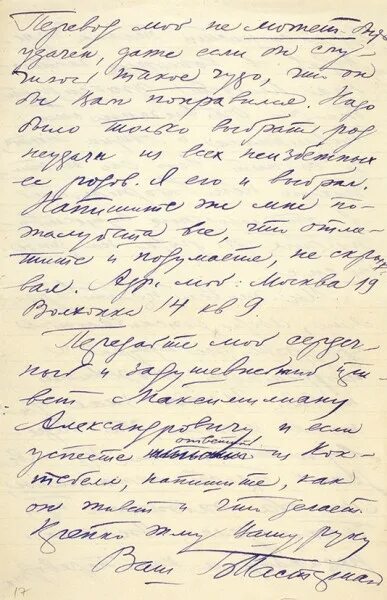 Перевод мой не может быть
удачен, даже если он слу
чилось такое чудо, что он
бы Вам понравился. Надо
было только выбрать род
неудачи из всех неизбежных
ее родов. Я его и выбрал.
Напишите же мне по-
жалуйста все, что отме-
тите и подумаете, не скры
вая. Адр. мой: Москва 19
Волхонка 14 кв 9.
Передайте мой сердеч-
ный и задушевнейший при
вет Максимилиану
Александровичу и если
успеете ответить из Кок-
тебеля, напишите, как
он живет и что делает.
Крепко жму Вашу руку
Ваш БПастернак
17